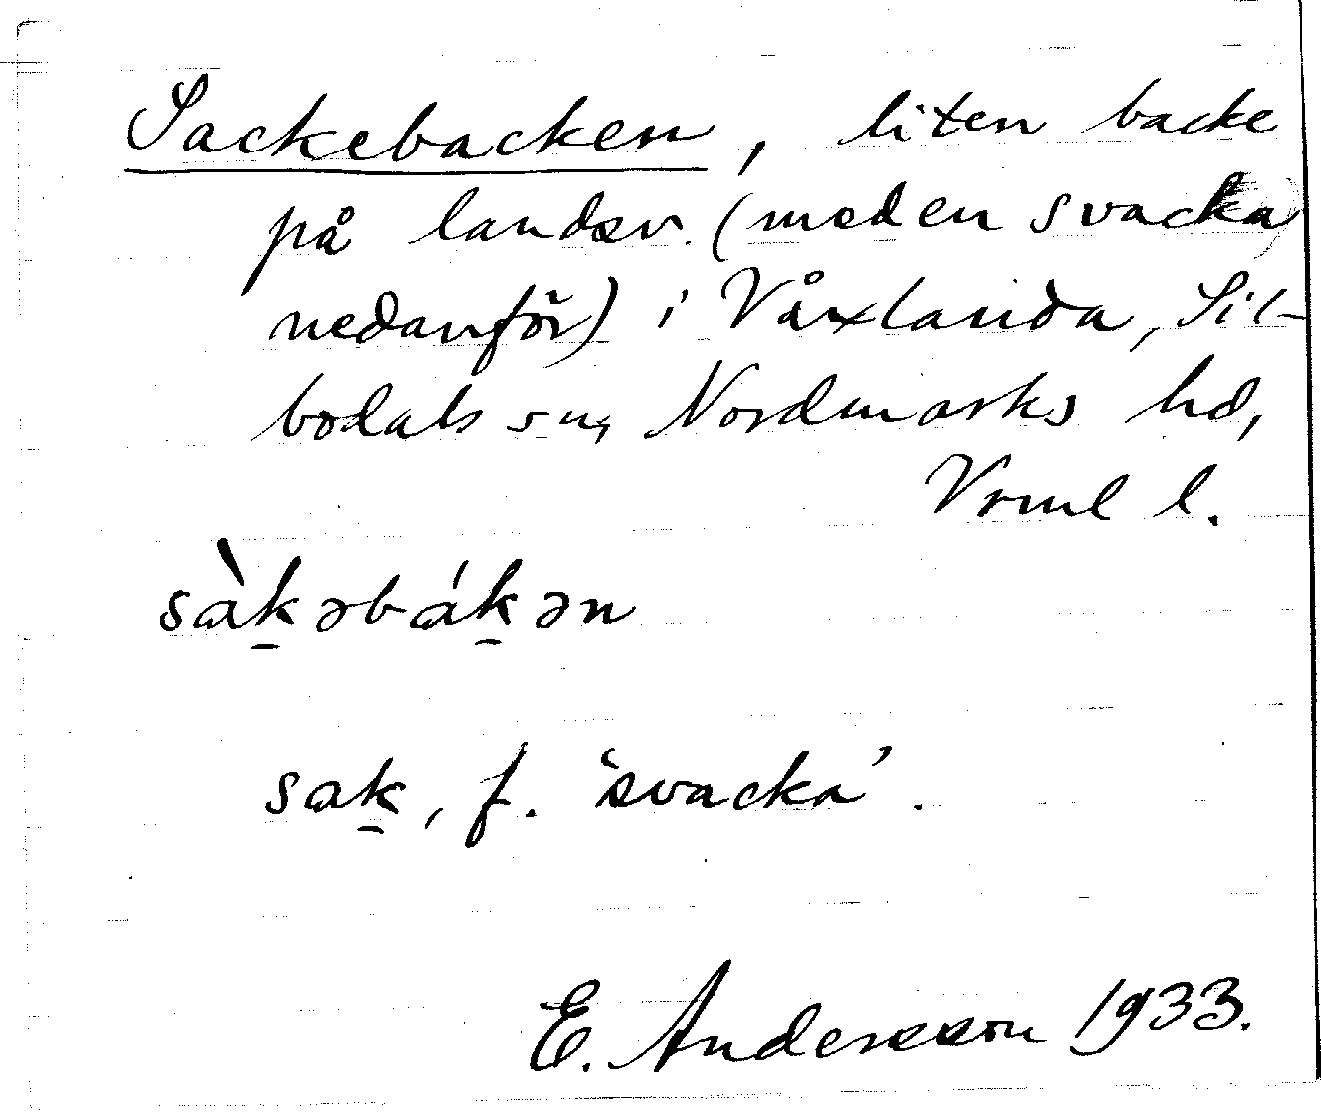 Sackebacken, liten backe
på landsv. (med en svacka
nedanför) i Våxlanda, Sil-
bodals sn, Nordmarks hd,
Vrml l.
sàk̠əbák̠ən
sak̠, f. 'svacka'.
E. Andersson 1933.